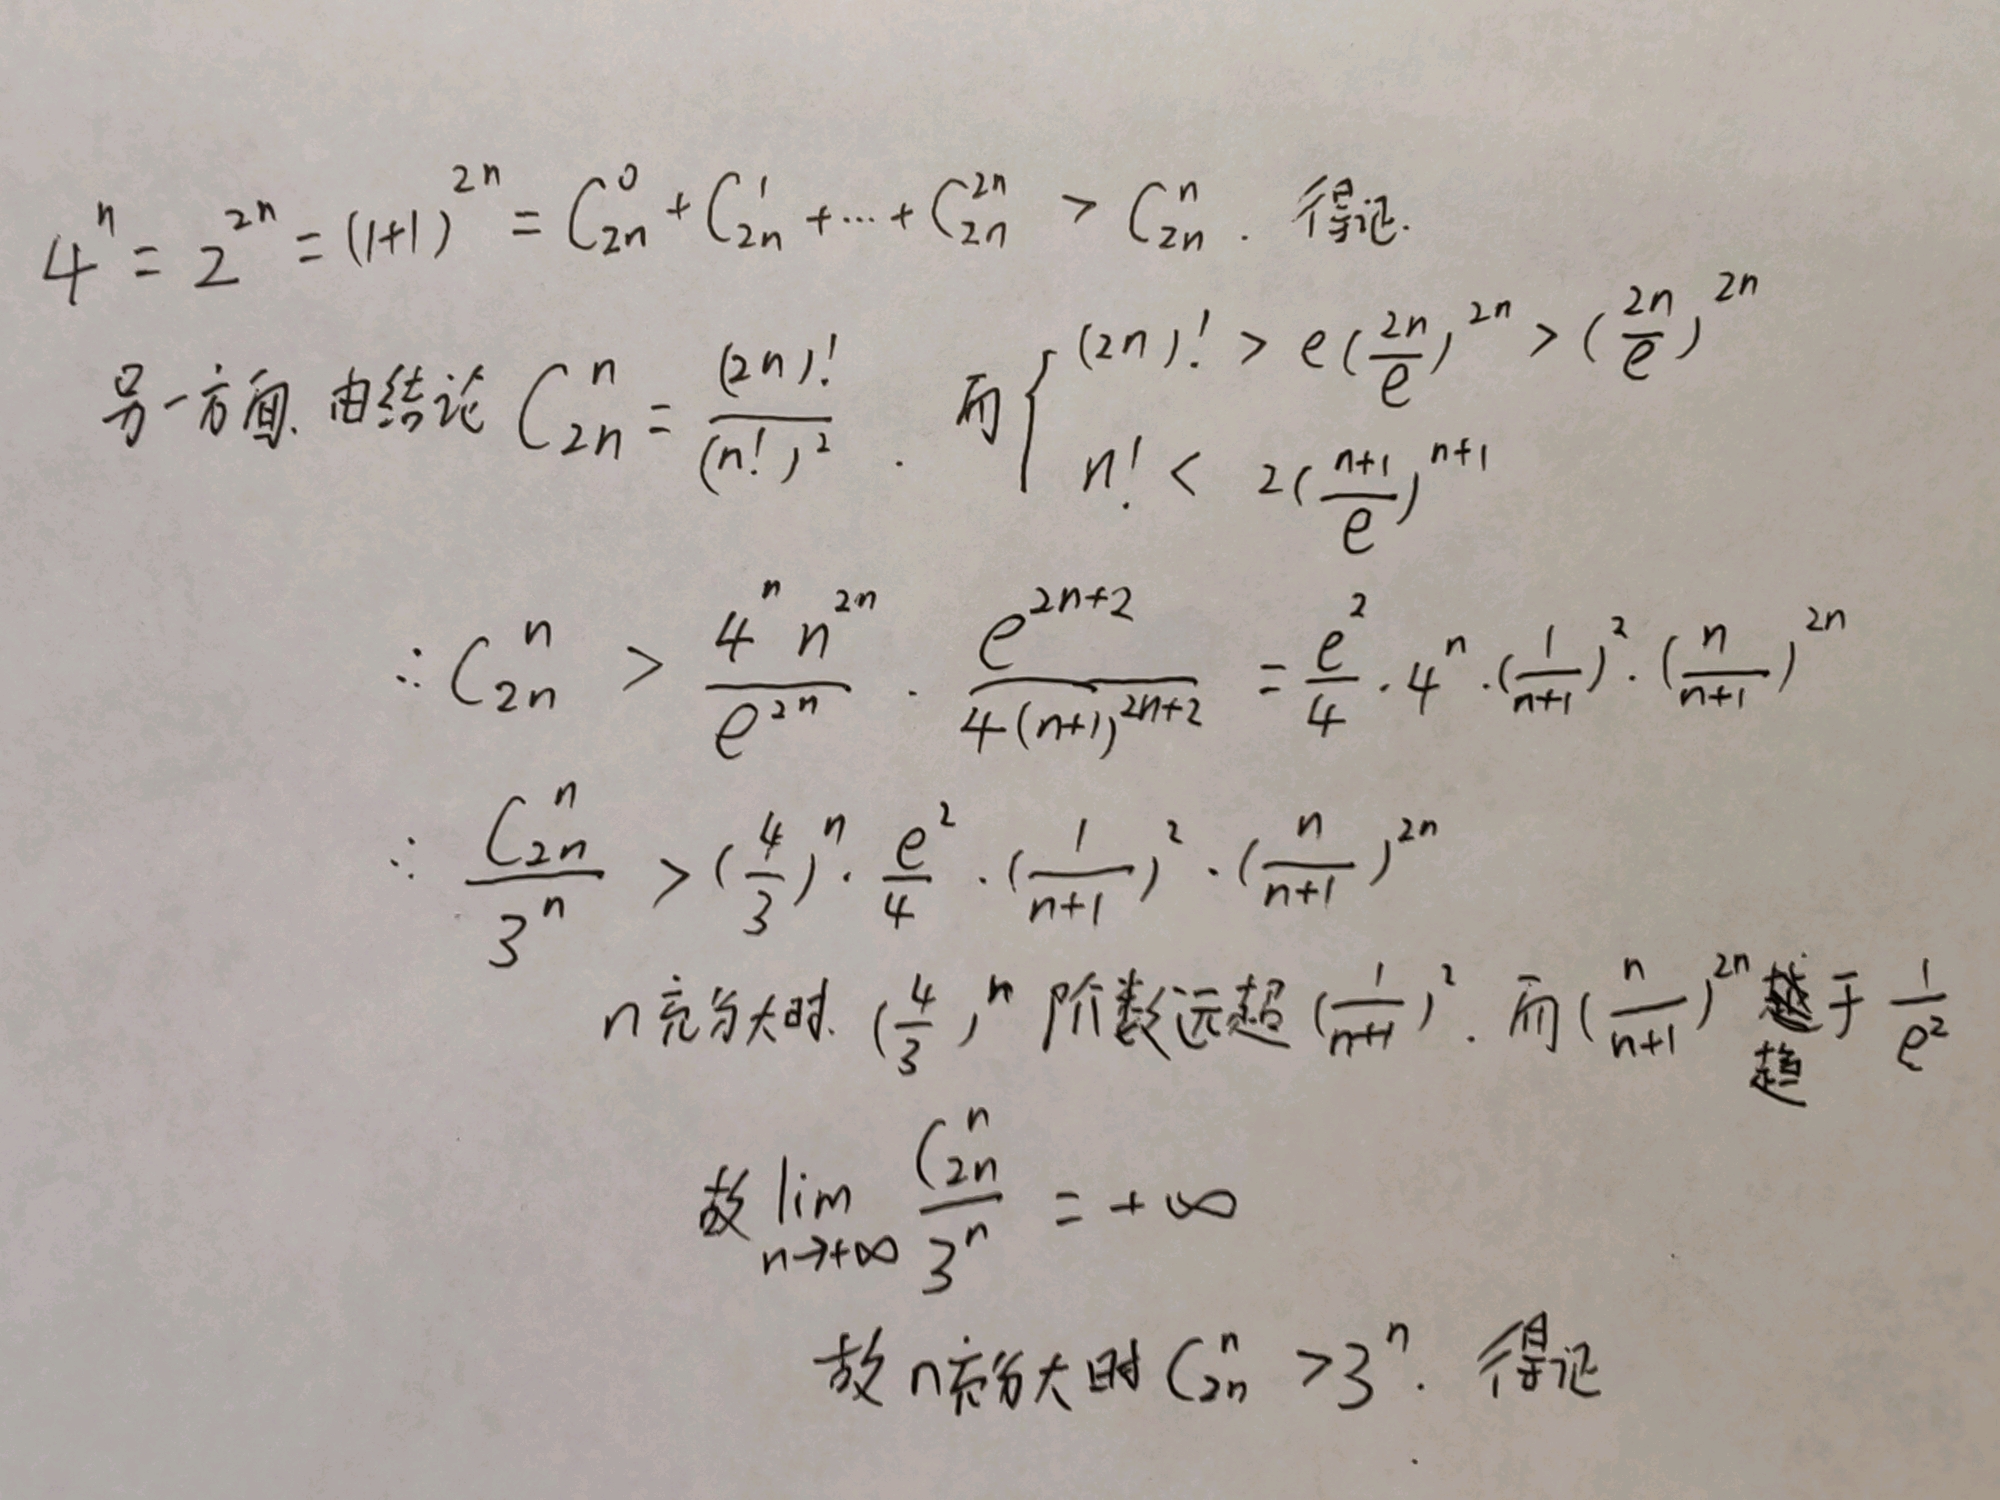 4^n = 2^{2n} = (1+1)^{2n} = C_{2n}^0 + C_{2n}^1 + ... + C_{2n}^{2n} > C_{2n}^n . 得证.
另一方面. 由结论 C_{2n}^n = \frac{(2n)!}{(n!)^2} . 而 { (2n)! > e(\frac{2n}{e})^{2n} > (\frac{2n}{e})^{2n}
n! < 2(\frac{n+1}{e})^{n+1}
∴ C_{2n}^n > \frac{4^n n^{2n}}{e^{2n}} · \frac{e^{2n+2}}{4(n+1)^{2n+2}} = \frac{e^2}{4} · 4^n · (\frac{1}{n+1})^2 · (\frac{n}{n+1})^{2n}
∴ \frac{C_{2n}^n}{3^n} > (\frac{4}{3})^n · \frac{e^2}{4} · (\frac{1}{n+1})^2 · (\frac{n}{n+1})^{2n}
n充分大时. (\frac{4}{3})^n 阶数远超 (\frac{1}{n+1})^2 . 而 (\frac{n}{n+1})^{2n} 趋于 \frac{1}{e^2}
故 \lim_{n→+∞} \frac{C_{2n}^n}{3^n} = +∞
故n充分大时 C_{2n}^n > 3^n . 得证